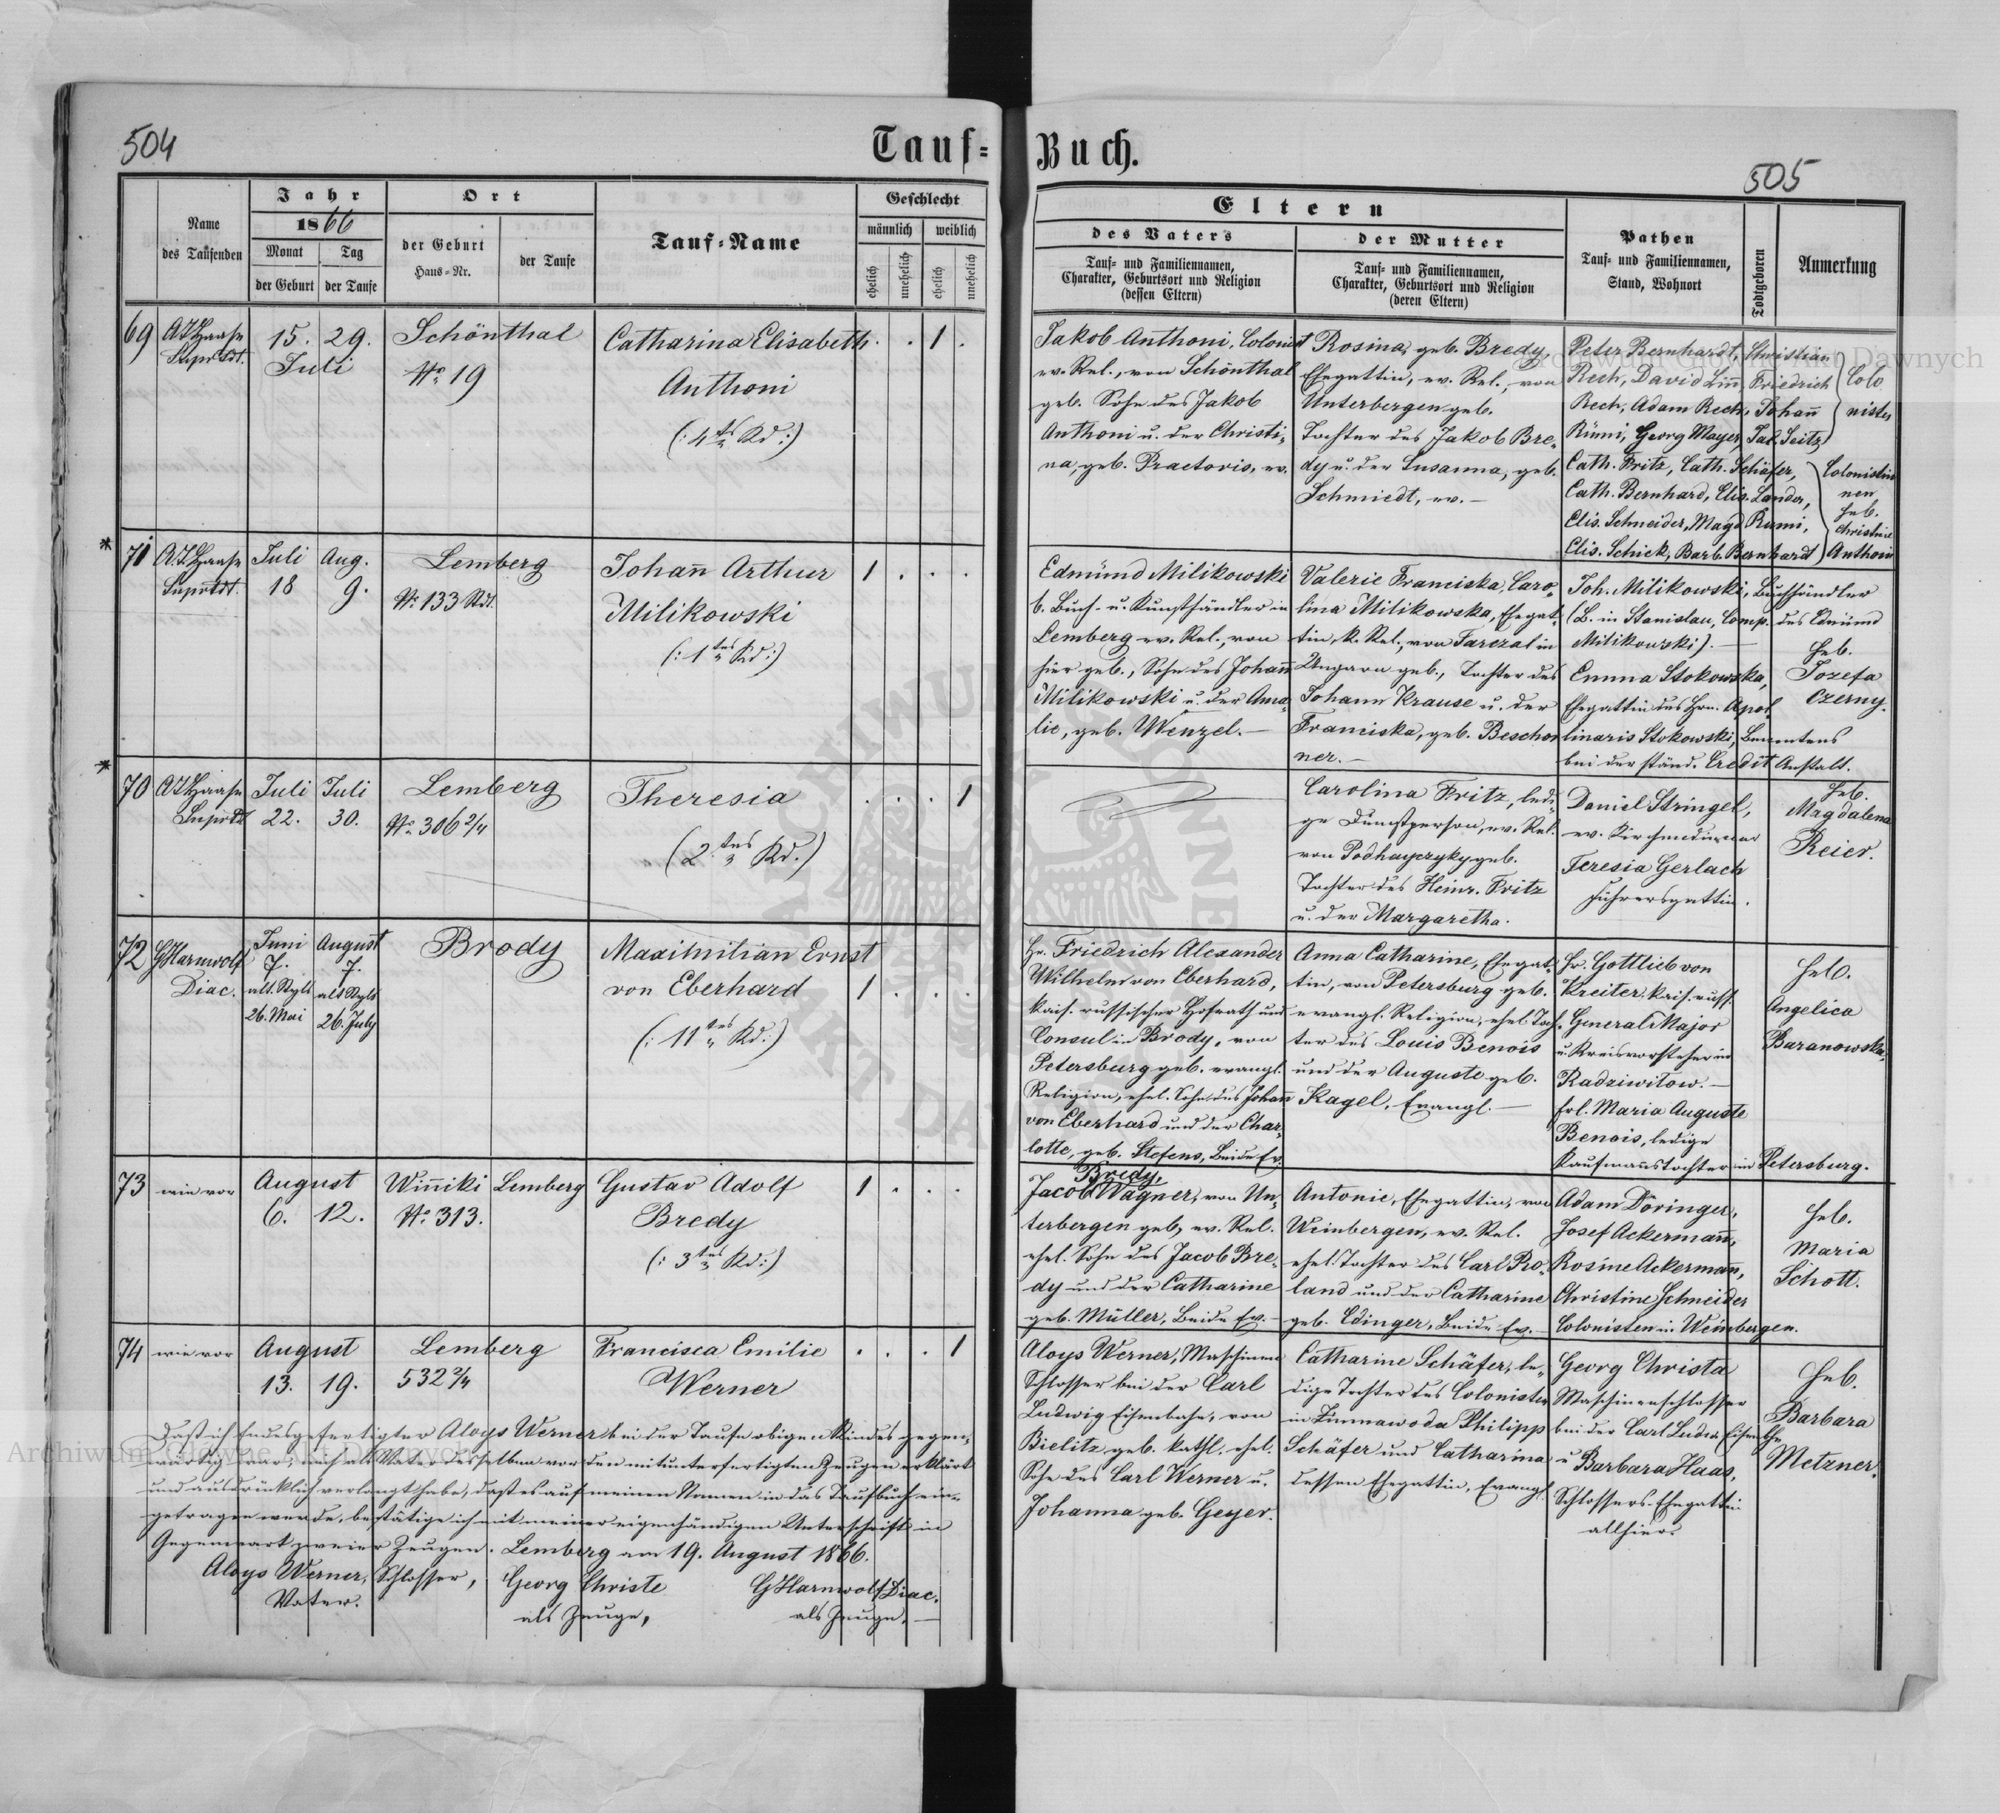 504
Tauf=Buch.
505
Name des Taufenden
Jahr
1866
Monat
Tag
der Geburt
der Taufe
Ort
der Geburt
Haus=Nr.
der Taufe
Tauf=Name
Geschlecht
männlich
weiblich
ehelich
unehelich
ehelich
unehelich
Eltern
des Vaters
Tauf= und Familiennamen,
Charakter, Geburtsort und Religion
(dessen Eltern)
der Mutter
Tauf= und Familiennamen,
Charakter, Geburtsort und Religion
(deren Eltern)
Pathen
Tauf= und Familiennamen,
Stand, Wohnort
Todtgeboren
Anmerkung
69
A. T. Haase
Supntdt.
15. 29.
Juli
Schönthal
No. 19
Catharina Elisabeth
Anthoni
(: 4tes Kd :)
1
Jakob Anthoni, Colonist
ev. Rel., von Schönthal
geb. Sohn des Jakob
Anthoni u. der Christi-
na, geb. Praetoris, ev.
Rosina, geb. Bredy,
Ehegattin, ev. Rel., von
Unterbergen geb.
Tochter des Jakob Bre-
dy u. der Susanna, geb.
Schmiedt, ev. —
Peter Bernhardt, Christian
Rech, David Linn, Friedrich
Rech, Adam Rech, Johann
Rümi, Georg Mayer, Jak. Seitz
Colo
nisten
Cath. Fritz, Cath. Schäfer,
Cath. Bernhard, Elis. Lander,
Elis. Schneider, Magd Rumi,
Elis. Schick, Barb. Bernhard
Colonistin
nen
Heb.
Christine
Anthoni
* 71
A. T. Haase
Supntdt.
Juli
18
Aug.
9.
Lemberg
No. 133 Stdt.
Johann Arthur
Milikowski
(: 1tes Kd :)
1
Edmund Milikowski
b. Buch- u. Kunsthändler in
Lemberg ev. Rel., von
hier geb., Sohn des Johann
Milikowski u. der Ama-
lie, geb. Wenzel. —
Valerie Franciska, Caro-
lina Milikowska, Ehegat-
tin, k. Rel., von Tarczal in
Ungarn geb., Tochter des
Johann Krause u. der
Franciska, geb. Beschor
ner. —
Joh. Milikowski, Buchhändler
(B. in Stanislau, Comp. des Edmund
Milikowski). —
Emma Stokowska,
Ehegattin des Hrn. Apol-
linaris Stokowski, Beamtens
bei der ständ. Credit Anstalt.
Heb.
Jozefa
Czerny.
* 70
A. T. Haase
Supntdt
Juli
22.
Juli
30.
Lemberg
No. 306 2/4
Theresia
(2tes Kd.)
1
Carolina Fritz, ledi-
ge Dienstperson, ev. Rel.
von Podhayczyky geb.
Tochter des Heinr. Fritz
u. der Margaretha.
Daniel Stringel,
ev. Kirchendiener
Teresia Gerlach
Führersgattin.
Heb.
Magdalena
Reier.
72
GHarnwolf
Diac.
Juni
7.
alt. Styls
26. Mai
August
7.
alt Styls
26. July
Brody
Maximilian Ernst
von Eberhard
(: 11tes Kd :)
1
Hr. Friedrich Alexander
Wilhelm von Eberhard,
kais. russischer Hofrath und
Consul in Brody, von
Petersburg geb. evangl.
Religion, ehel. Sohn des Johann
von Eberhard und der Char-
lotte, geb. Stefens, Beide Ev.
Anna Catharine, Ehegat-
tin, von Petersburg geb.
evangl. Religion, ehel Toch-
ter des Louis Benois
und der Auguste geb.
Kagel, Evangl. —
Hr. Gottlieb von
Kreiter, kais. russ.
General Major
u. Kreisvorsteher in
Radziwitow. —
Frl. Maria Auguste
Benois, ledige
Kaufmannstochter in Petersburg.
Heb.
Angelica
Baranowska.
73
wie vor
August
6. 12.
Winniki
No. 313.
Lemberg
Gustav Adolf
Bredy
(: 3tes Kd :)
1
Bredy,
Jacob Wagner, von Un-
terbergen geb, ev. Rel.
ehel. Sohn des Jacob Bre-
dy und der Catharine
geb. Müller, Beide Ev. —
Antonie, Ehegattin, von
Weinbergen, ev. Rel.
ehel. Tochter des Carl Ro-
land und der Catharine
geb. Edinger, Beide Ev. —
Adam Döringer,
Josef Ackermann,
Rosine Ackermann,
Christine Schneider
Colonisten in Weinbergen.
Heb.
Maria
Schott.
74
wie vor
August
13. 19.
Lemberg
532 2/4
Francisca Emilie
Werner
1
Aloys Werner, Maschinen
Schlosser bei der Carl
Ludwig Eisenbahn, von
Bielitz geb. kathl. ehel.
Sohn des Carl Werner u.
Johanna geb. Geyer.
Catharine Schäfer, le-
dige Tochter des Colonisten
in Zimnawoda Philipp
Schäfer und Catharina
dessen Ehegattin, Evangl.
Georg Christa
Maschinenschlosser
bei der Carl Ludw. Eisenbhn
u Barbara Haas,
Schlossers-Ehegattin
allhier.
Heb.
Barbara
Metzner.
Daß ich Endesgefertigter Aloys Werner bei der Taufe obigen Kindes gegen-
wärtig war, mich als Vater desselben vor den mitunterfertigten Zeugen erklärt
und ausdrücklich verlangt habe, daß es auf meinen Namen in das Taufbuch ein-
getragen werde, bestätige ich mit meiner eigenhändigen Unterschrift in
Gegenwart zweier Zeugen. Lemberg am 19. August 1866.
Aloys Werner, Schlosser,
Vater.
Georg Christe
als Zeuge,
GHarnwolf Diac.
als Zeuge. —
Archiwum Główne Akt Dawnych